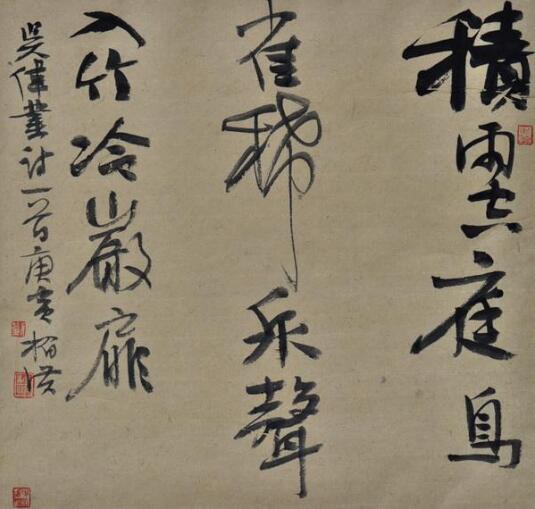 積雨空庭鳥
雀稀泉聲
入竹冷巖扉
吳偉業詩一首庚寅